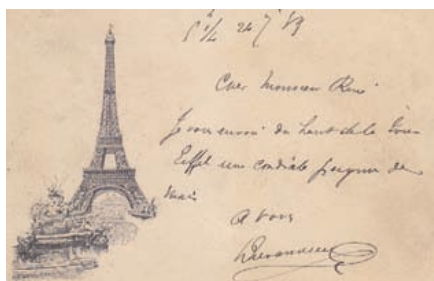 24 7 89
Cher Monsieur René
Je vous envoi du haut de la Tour
Eiffel une cordiale poignée de
main
A vous